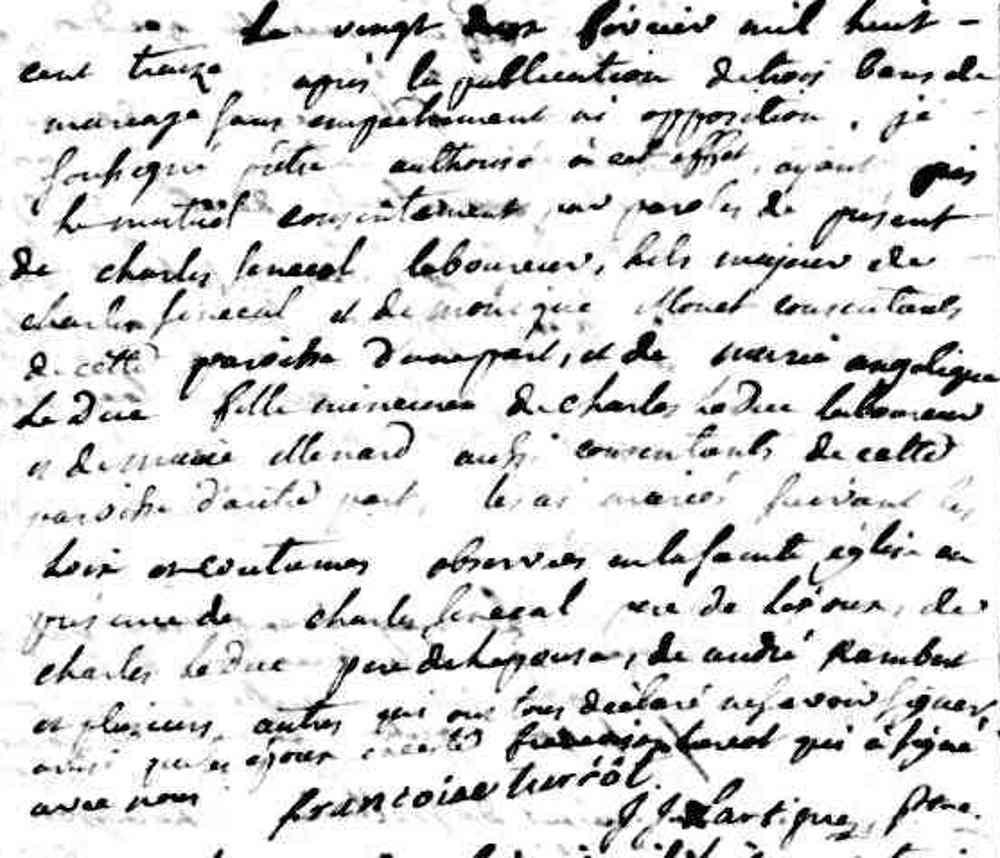 Le vingt deux février mil huit -
cent treize après la publication de trois bans de
mariage sans empêchement ni opposition, je
soussigné prêtre authorisé à cet effet, ayant pris
le mutuel consentement par paroles de present
de charles senecal laboureur, fils majeur de
charles senecal et de monique Monet consentants
de cette paroisse d'une part, et de marie angelique
LeDuc fille mineure de charles LeDuc laboureur
et de marie Menard aussi consentants de cette
paroisse d'autre part, les ai mariés suivant les
loix et coutumes observées en la sainte église en
présence de charles senecal pere de l'époux, de
charles LeDuc pere de l'epouse, de andré Rambert
et plusieurs autres qui ont tous déclaré ne savoir signer,
ainsi que les époux excepté qui a signé
avec nous
francoise
J. J. Lartigue, ptre.